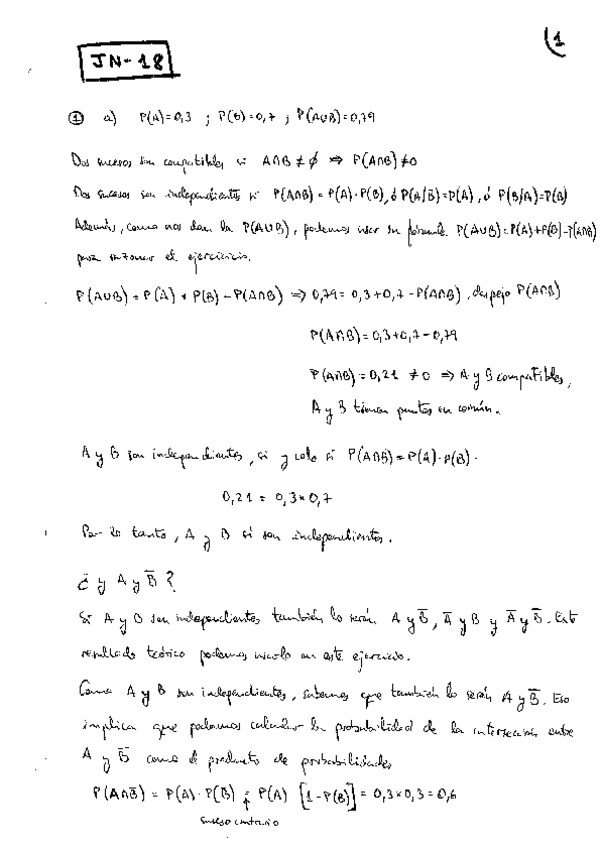 1
JN-18
① a) P(A)=0,3 ; P(B)=0,7 ; P(A∪B)=0,79
Dos sucesos son compatibles si A∩B ≠ ∅ ⇒ P(A∩B) ≠ 0
Dos sucesos son independientes si P(A∩B) = P(A)·P(B), ó P(A/B)=P(A), ó P(B/A)=P(B)
Además, como nos dan la P(A∪B), podemos usar su fórmula P(A∪B)=P(A)+P(B)-P(A∩B)
para el ejercicio.
P(A∪B) = P(A) + P(B) - P(A∩B) ⇒ 0,79 = 0,3+0,7 - P(A∩B), despejo P(A∩B)
P(A∩B) = 0,3+0,7-0,79
P(A∩B) = 0,21 ≠ 0 ⇒ A y B compatibles,
A y B tienen puntos en común.
A y B son independientes, si y solo si P(A∩B) = P(A)·P(B).
0,21 = 0,3×0,7
Por lo tanto, A y B sí son independientes.
¿ y A y B̅ ?
Si A y B son independientes también lo serán A y B̅, A̅ y B y A̅ y B̅. Este
resultado teórico podemos usarlo en este ejercicio.
Como A y B son independientes, sabemos que también lo serán A y B̅. Eso
implica que podemos calcular la probabilidad de la intersección entre
A y B̅ como el producto de probabilidades
P(A∩B̅) = P(A) · P(B̅) = P(A) [1-P(B)] = 0,3×0,3 = 0,6
suceso contrario